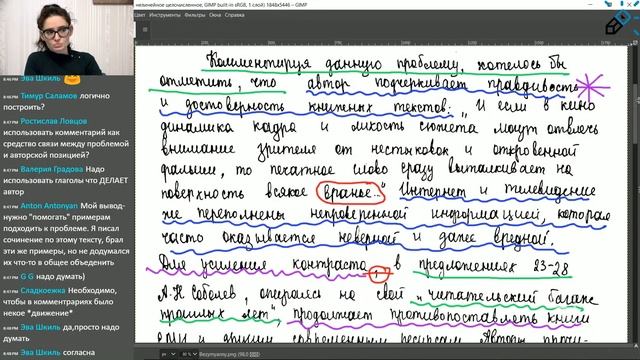 нелинейное целочисленное, GIMP built-in sRGB, 1 слой) 1848x5446 – GIMP
Цвет Инструменты Фильтры Окна Справка
Эва Шкиль
8:46 PM Тимур Саламов логично построить?
8:47 PM Ростислав Ловцов
использовать комментарий как
средство связи между проблемой
и авторской позицией?
8:47 PM Валерия Градова Надо
использовать глаголы что ДЕЛАЕТ
автор
8:47 PM Anton Antonyan Мой вывод-
нужно "помогать" примерам
подходить к проблеме. Я писал
сочинение по этому тексту, брал
эти же примеры, но не додумался
их что-то в общее объединить
8:47 PM G G надо думать)
8:47 PM Сладкоежка Необходимо,
чтобы в комментариях было
некое *движение*
8:48 PM Эва Шкиль да,просто надо
думать
8:48 PM Эва Шкиль согласна
Комментируя данную проблему, хотелось бы
отметить, что автор подчеркивает правдивость
и достоверность книжных текстов: „И если в кино
динамика кадра и лихость сюжета могут отвлечь
внимание зрителя от нестыковок и откровенной
фальши, то печатное слово сразу выталкивает на
поверхность всякое вранье..." Интернет и телевидение
же переполнены непроверенной информацией, которая
часто оказывается неверной и даже вредной.
Для усиления контраста, в предложениях 23-28
А.Н. Соболев, опираясь на свой „читательский багаж
прошлых лет", продолжает противопоставлять книги
Безымянny.png (98,0